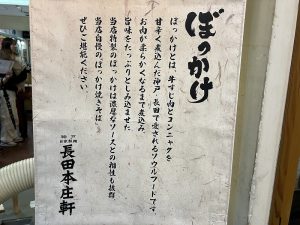 ぼっかけ
ぼっかけとは、牛すじ肉とコンニャクを
甘辛く煮込んだ神戸・長田で愛されるソウルフードです。
お肉が柔らかくなるまで煮込み、
旨味をたっぷりとしみ込ませました。
当店特製のぼっかけは濃厚なソースとの相性も抜群。
当店自慢のぼっかけ焼きそば、
ぜひご堪能ください。
神戸
長田本庄軒